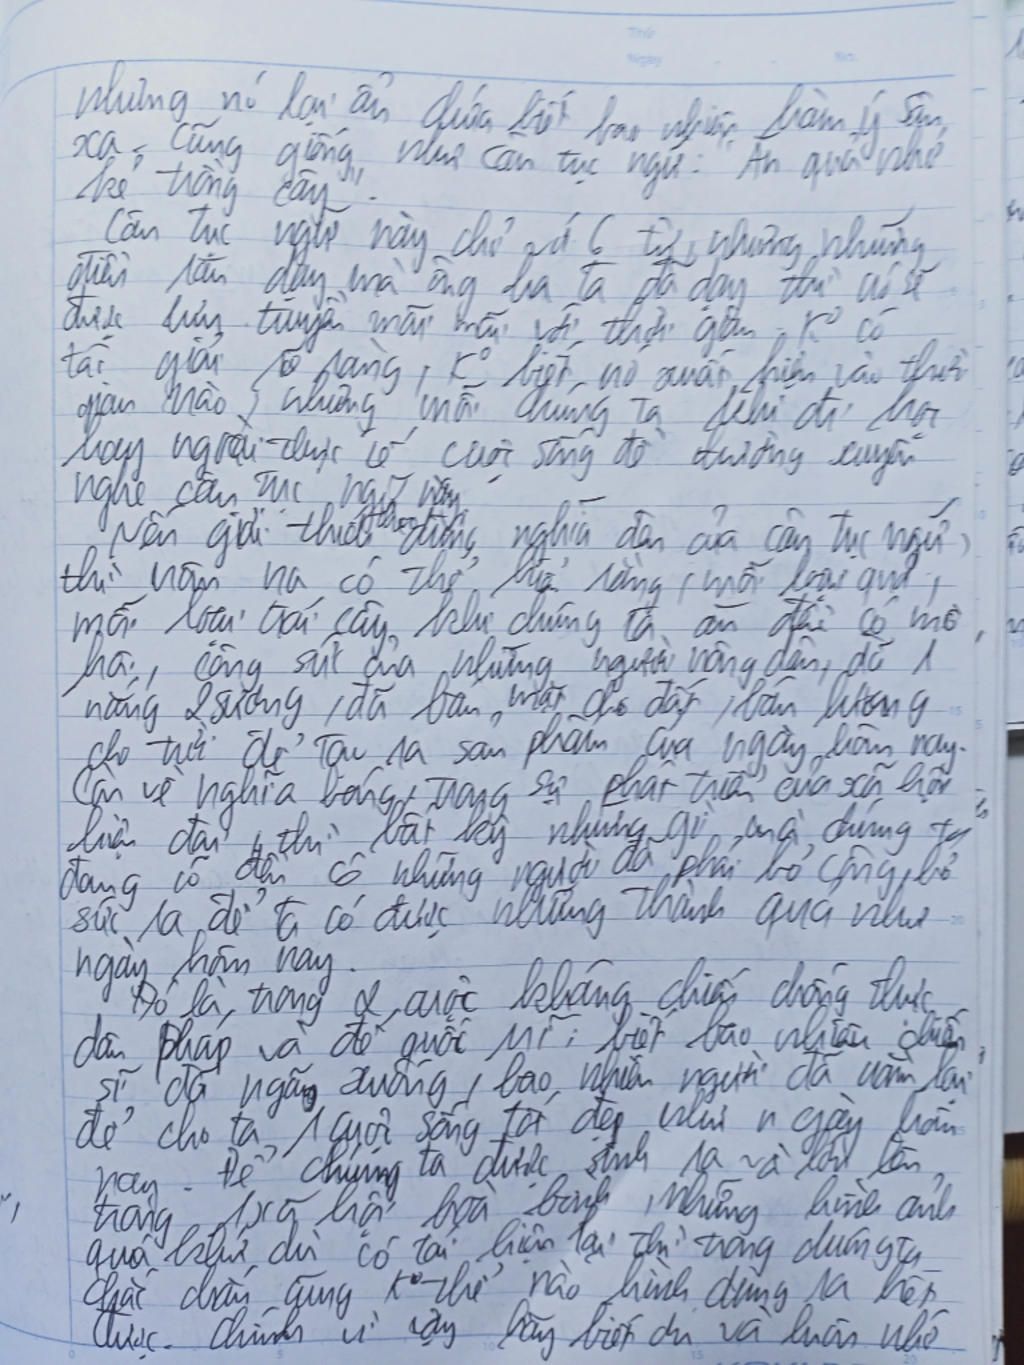 Thứ
Ngày No.
nhưng nó lại ẩn chứa biết bao nhiêu hàm ý sâu
xa. Cũng giống như câu tục ngữ: "Ăn quả nhớ
kẻ trồng cây".
Câu tục ngữ này chỉ có 6 từ, nhưng những
điều răn dạy mà ông cha ta đã dạy thì nó sẽ
được lưu truyền mãi mãi với thời gian. K° có
tác giả rõ ràng, K° biết nó xuất hiện vào thời
gian nào, nhưng mỗi chúng ta khi đi học
hay ngoài thực tế cuộc sống đề thường xuyên
nghe câu tục ngữ này.
Nếu giải thích theo đúng nghĩa đen của câu tục ngữ,
thì nôm na có thể hiểu rằng, mỗi loại quả,
mỗi loại trái cây khi chúng ta ăn đều có mồ
hôi, công sức của những người nông dân, đã 1
nắng 2 sương, đã bán mặt cho đất, bán lưng
cho trời để tạo ra sản phẩm của ngày hôm nay.
Còn về nghĩa bóng, trong sự phát triển của xã hội
hiện đại, thì bất kỳ những gì mà chúng ta
đang có đều có những người đã phải bỏ công, bỏ
sức ra để ta có được những thành quả như
ngày hôm nay.
Đó là, trong 2 cuộc kháng chiến chống thực
dân Pháp và đế quốc Mĩ; biết bao nhiêu chiến
sĩ đã ngã xuống, bao nhiêu người đã nằm lại
để cho ta 1 cuộc sống tốt đẹp như ngày hôm
nay. Để chúng ta được sinh ra và lớn lên
trong 1 xã hội hoà bình, những hình ảnh
quá khứ, dù có tái hiện lại thì trong chúng ta
chắc chắn cũng K° thể nào hình dung ra hết
được. Chính vì vậy hãy biết ơn và luôn nhớ